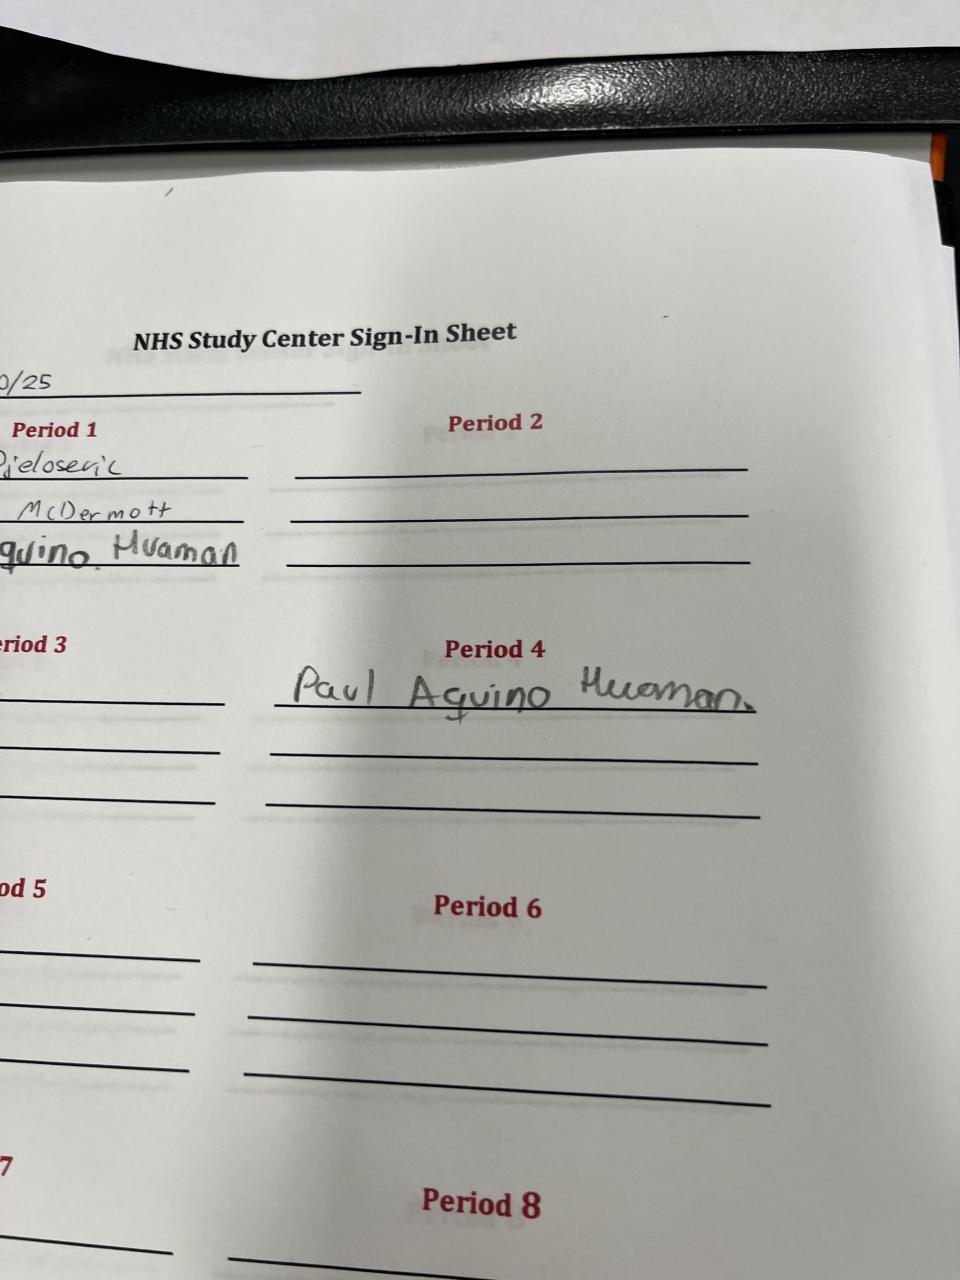 NHS Study Center Sign-In Sheet
0/25
Period 1
Period 2
Djeloseric
McDermott
quino Huaman
eriod 3
Period 4
Paul Aquino Huaman.
od 5
Period 6
7
Period 8